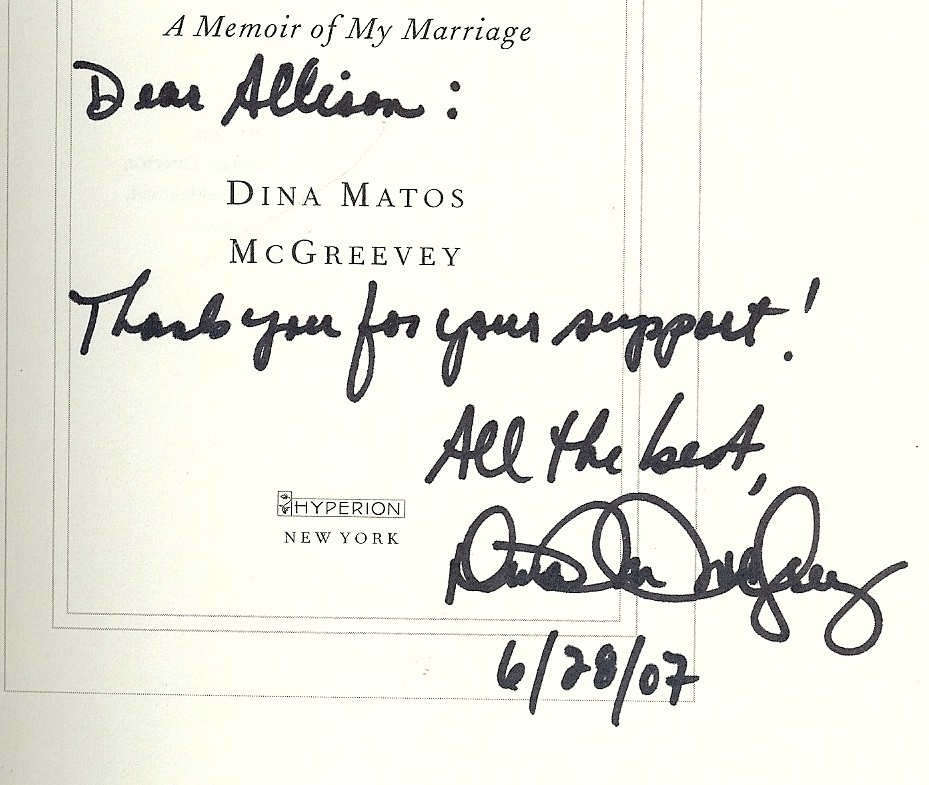 A Memoir of My Marriage
Dear Allison:
DINA MATOS
MCGREEVEY
Thank you for your support!
All the best,
HYPERION
NEW YORK
6/28/07